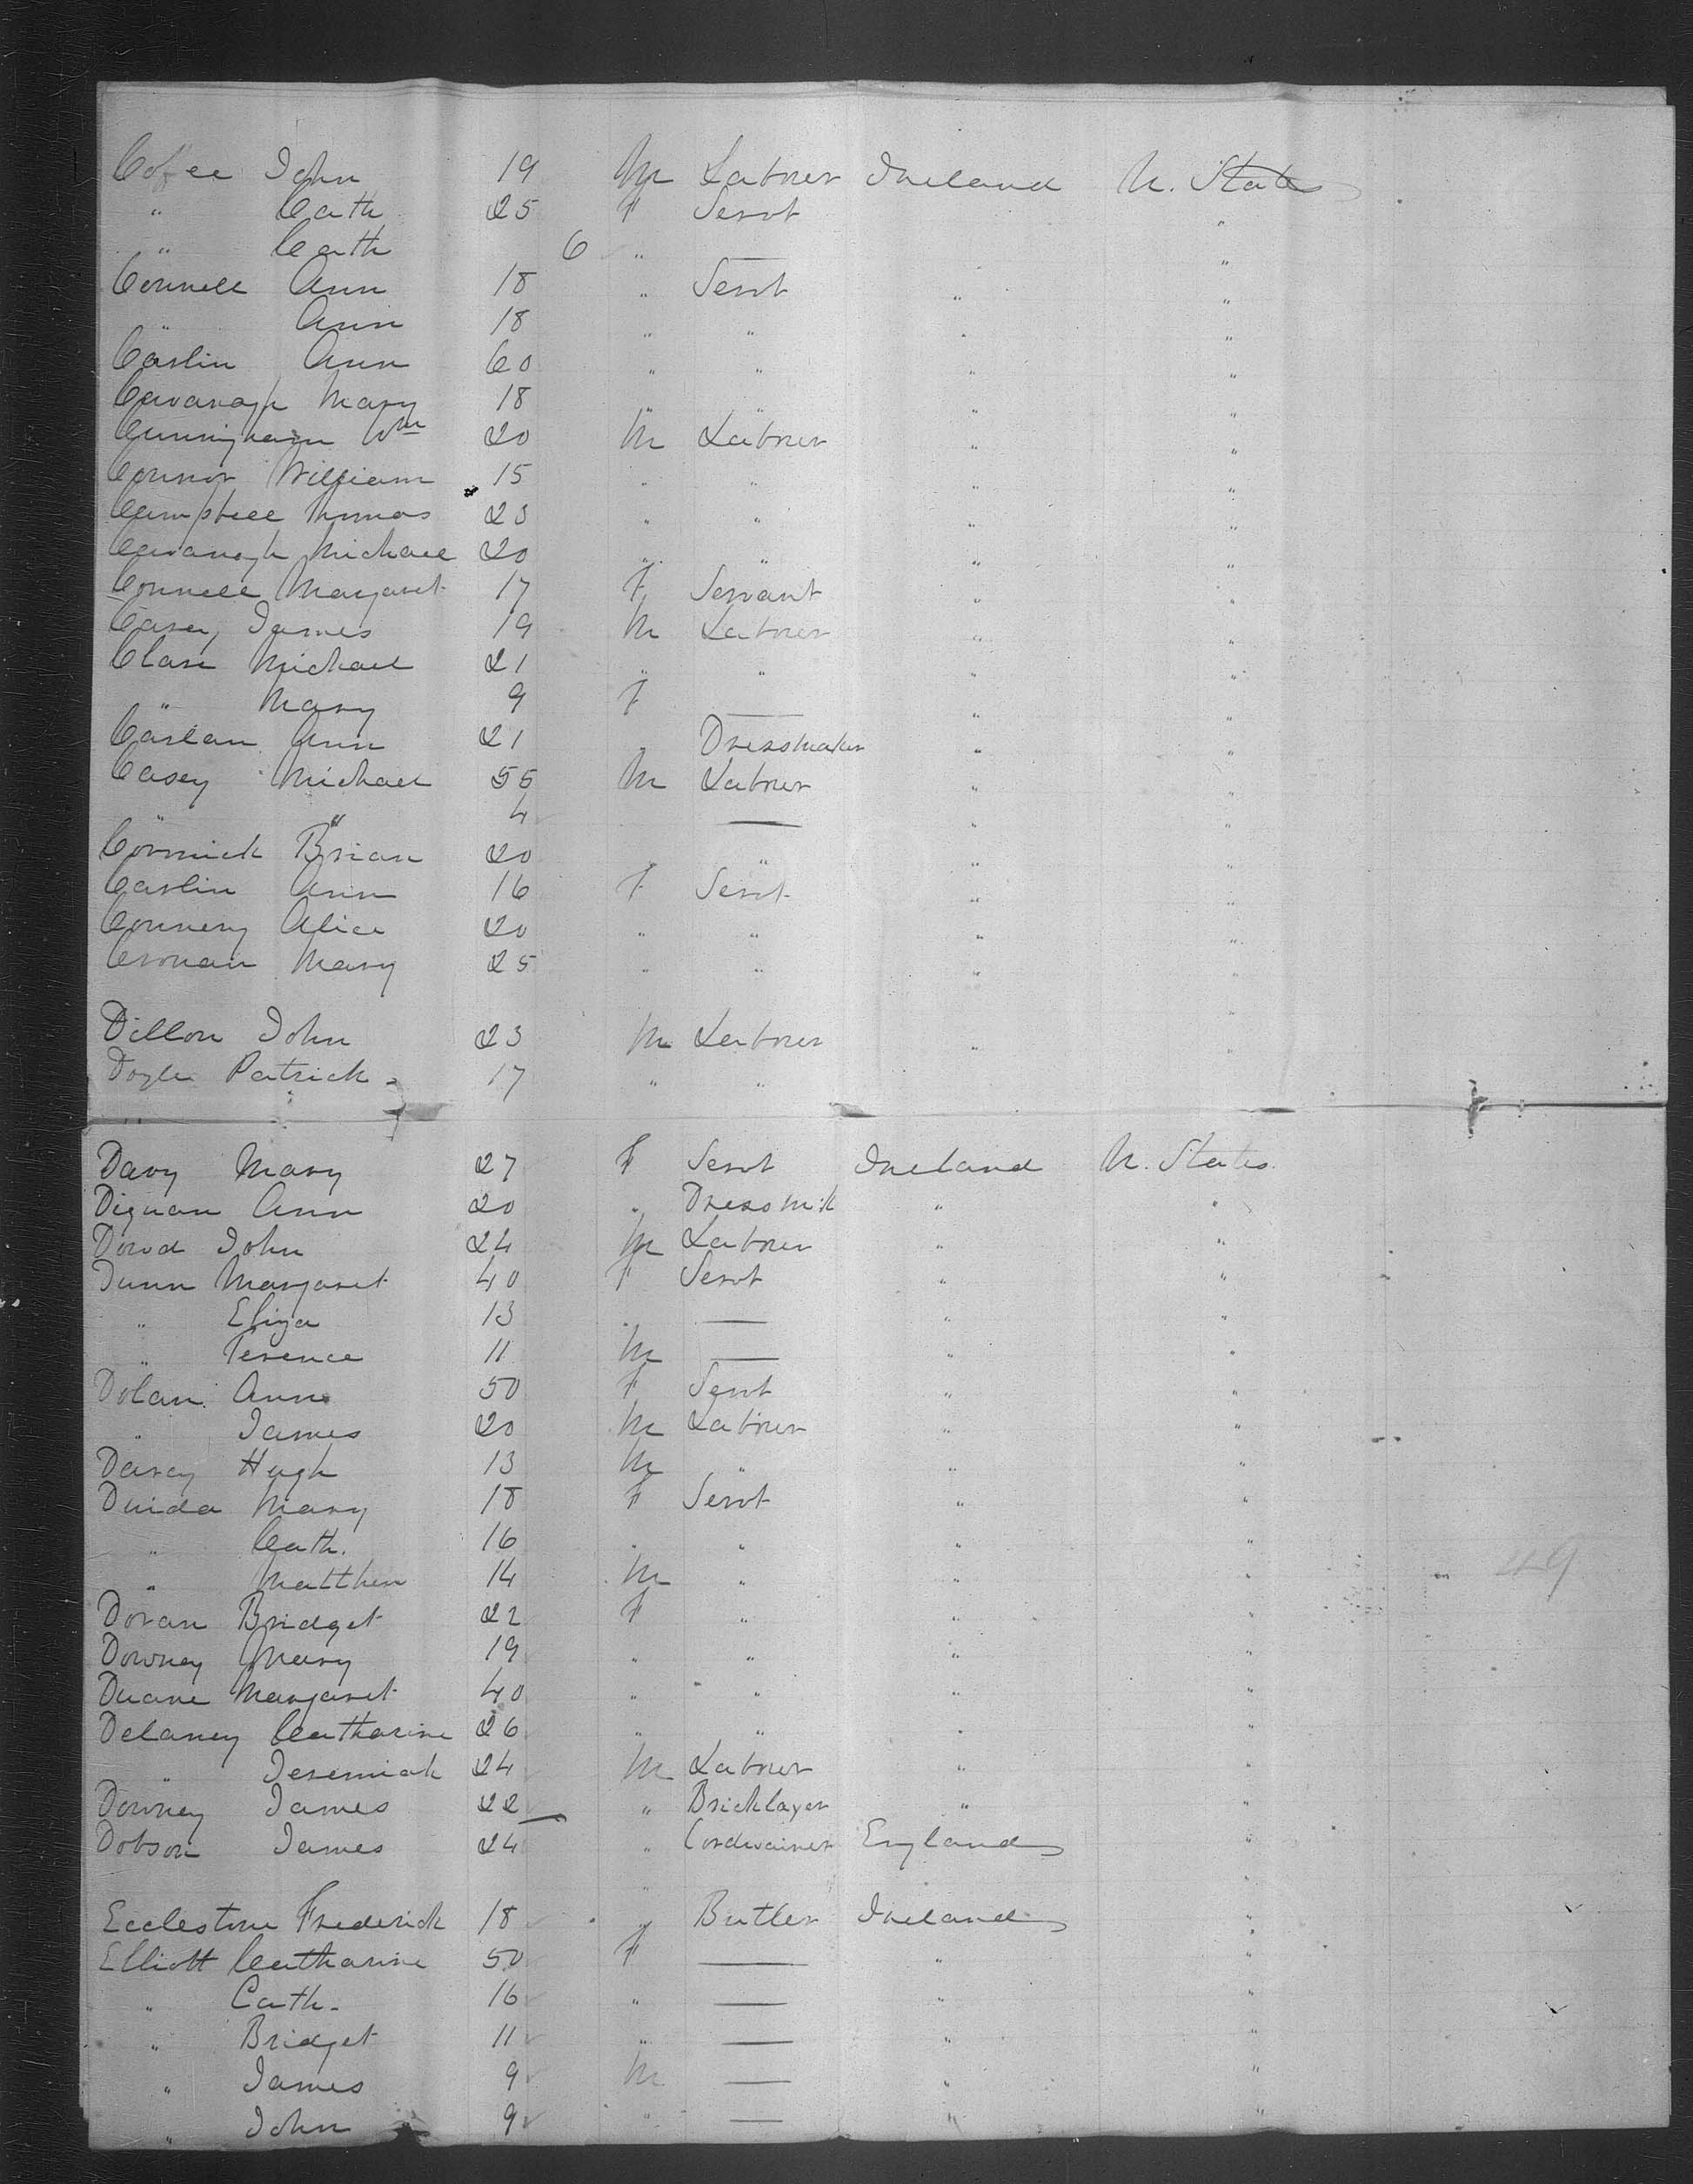 Coffee John 19 M Labrer Ireland U. States
" Cath 25 F Servt "
" Cath 6 " — "
Connell Ann 18 " Servt " "
" Ann 18 " " " "
Carlin Ann 60 " " " "
Cavanagh Mary 18 " " " "
Cunningham Wm 20 M Labrer " "
Connor William 15 " " " "
Campbell Thomas 23 " " " "
Cavanagh Michael 20 " " " "
Connell Margaret 17 F Servant " "
Casey James 19 M Labrer " "
Clare Michael 21 " " " "
" Mary 9 F — " "
Caslan Ann 21 " Dressmaker " "
Casey Michael 55 M Labrer " "
" " 4 — " "
Cormick Brian 20 " " "
Carlin Ann 16 F Servt " "
Connery Alice 20 " " " "
Cronan Mary 25 " " " "
Dillon John 23 M Labrer " "
Doyle Patrick 17 " "
Davy Mary 27 F Servt Ireland U. States
Dignan Ann 20 " Dressmk " "
Dowd John 24 M Labrer " "
Dunn Margaret 40 F Servt " "
" Eliza 13 " — " "
" Terence 11 M — " "
Dolan Ann 50 F Servt " "
" James 20 M Labrer " "
Darcy Hugh 13 M " " "
Duida Mary 18 F Servt " "
" Cath. 16 " " " "
" Matthew 14 M " " "
49
Doran Bridget 22 F " " "
Downey Mary 19 " " " "
Duane Margaret 40 " " " "
Delaney Catharine 26 " " " "
" Jeremiah 24 M Labrer " "
Downey James 22 " Bricklayer " "
Dobson James 24 " Cordwainer England "
Ecclestone Frederick 18 " Butler Ireland "
Elliott Catharine 50 F — " "
" Cath. 16 " — " "
" Bridget 11 " — " "
" James 9 M — " "
" John 9 " — " "